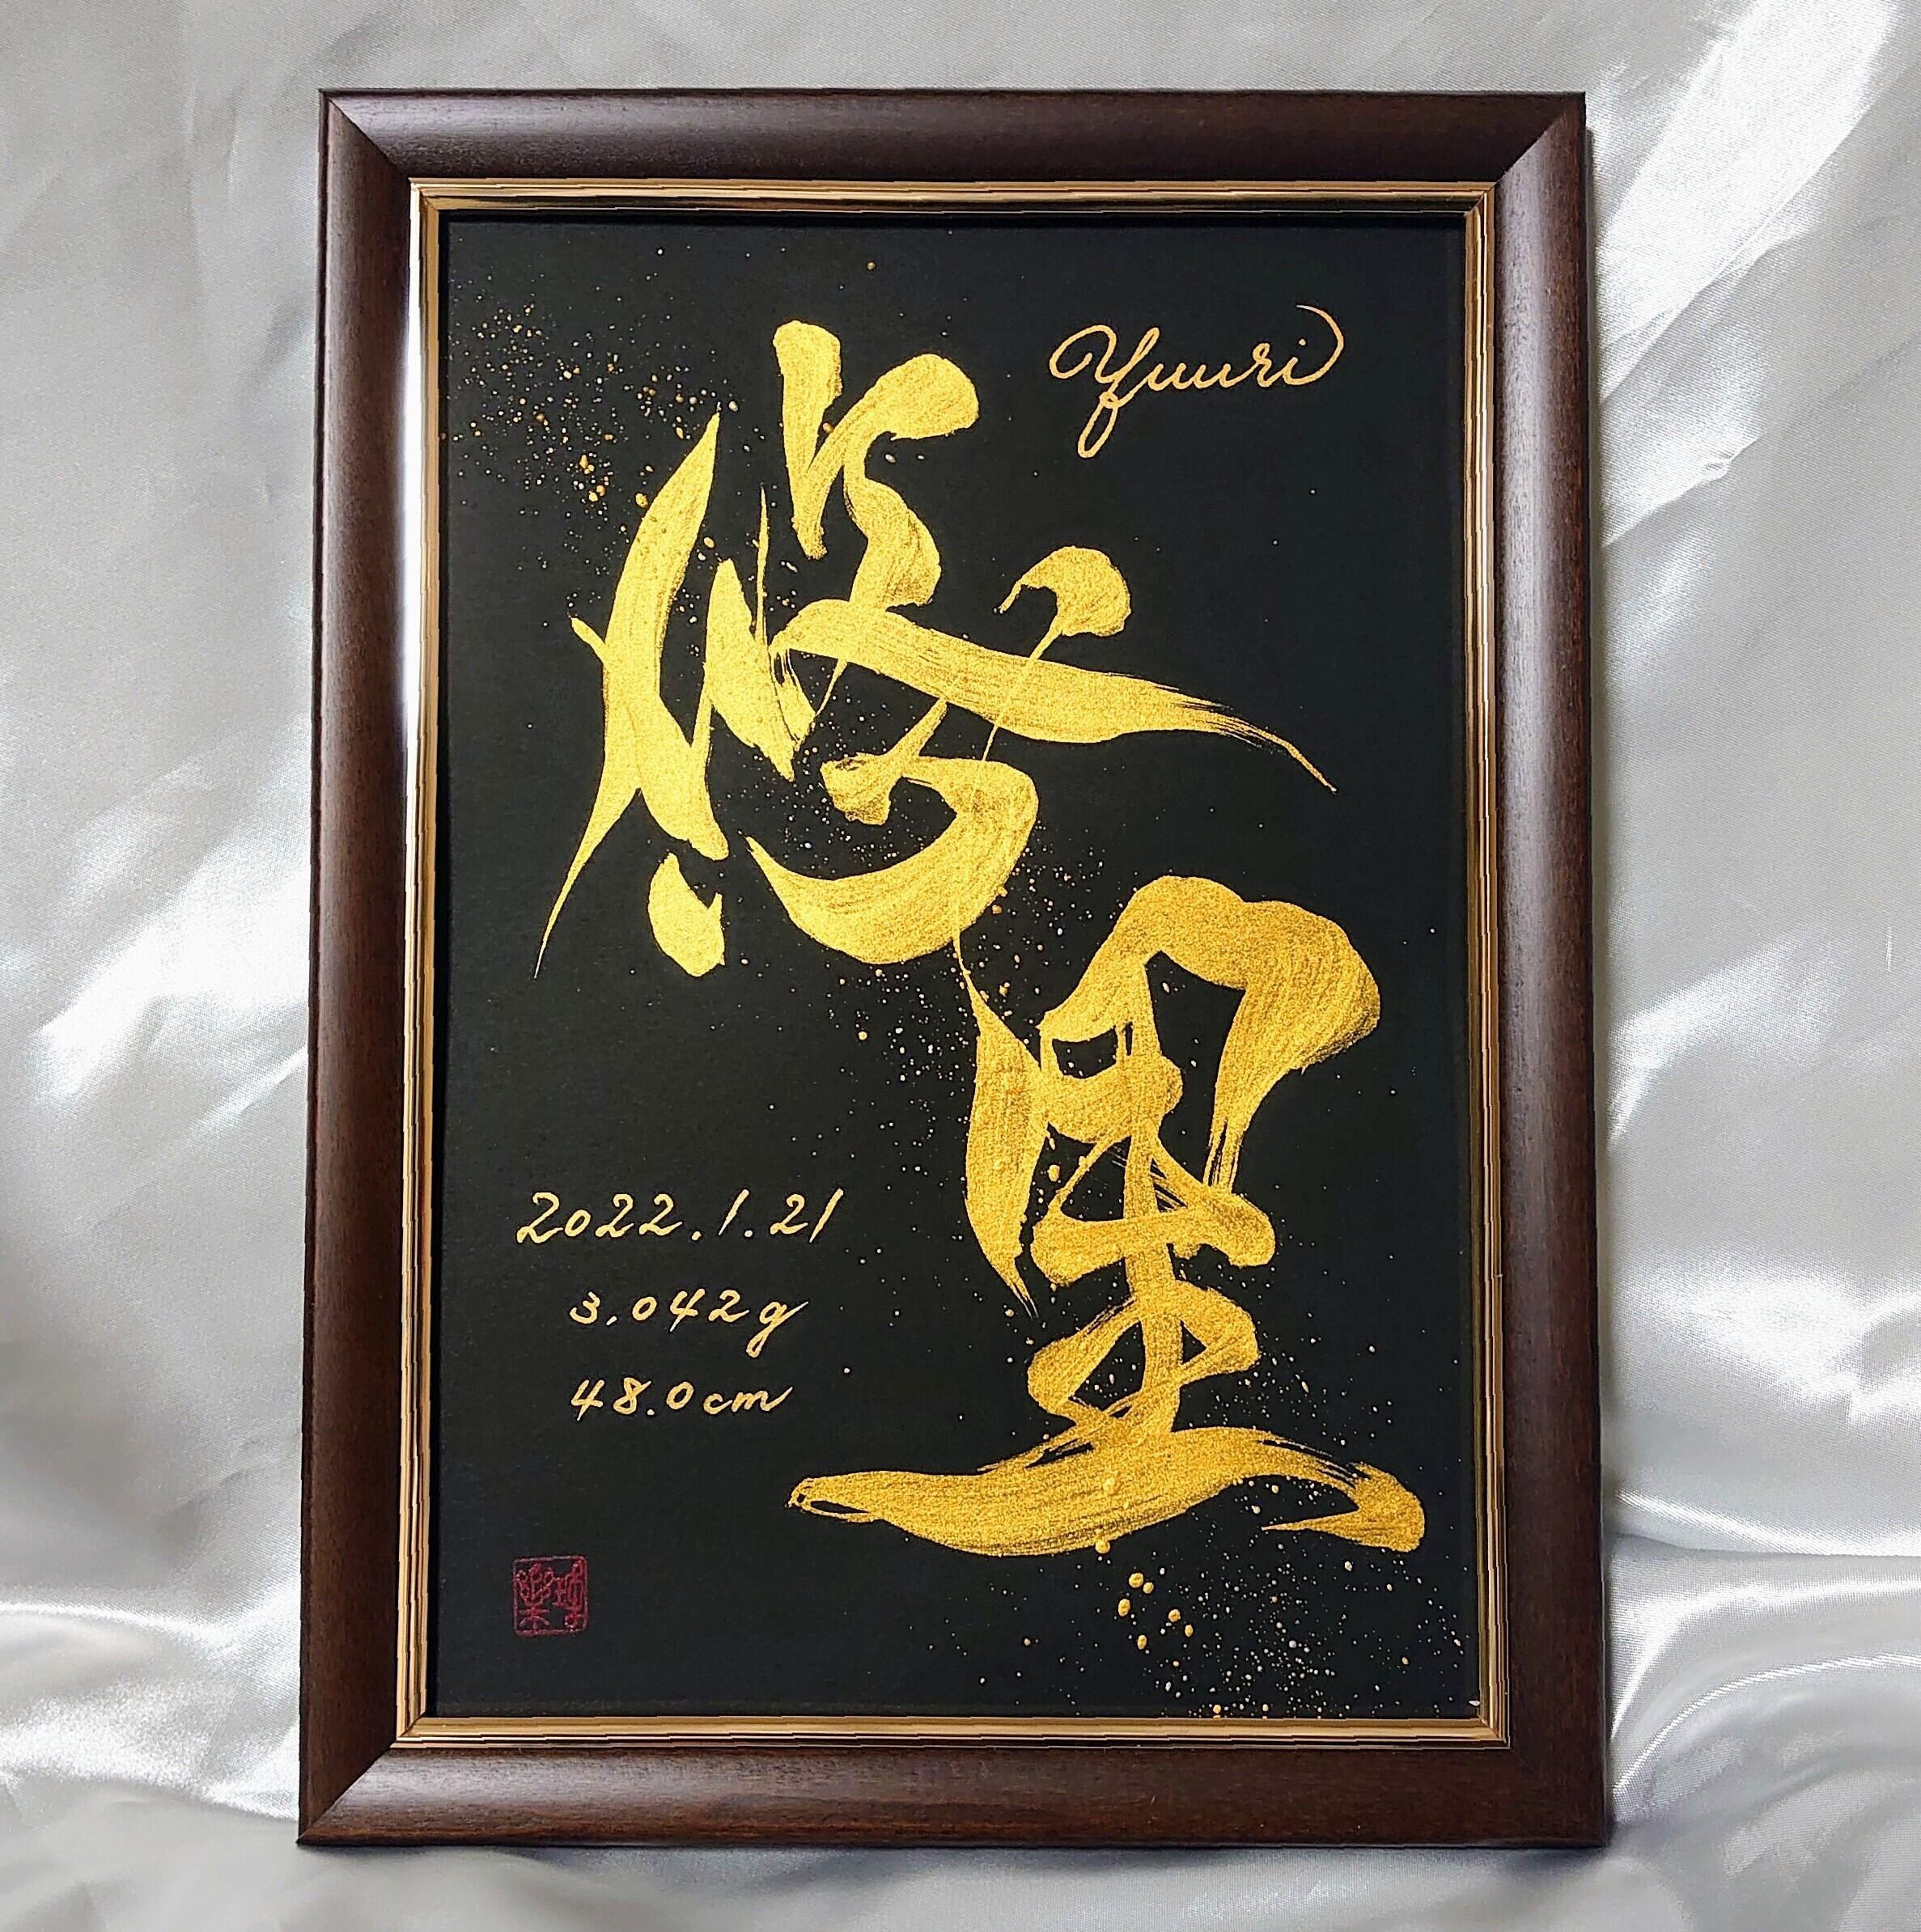 Yuuri
悠里
2022.1.21
3,042g
48.0cm